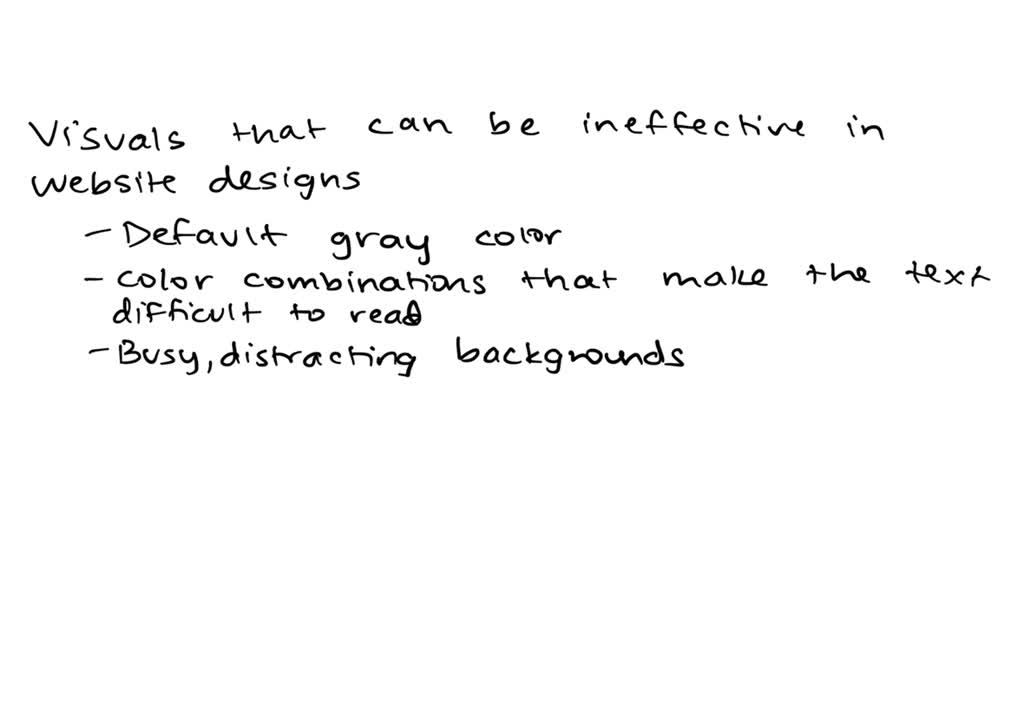 Visuals that can be ineffective in
website designs
- Default gray color
- color combinations that make the text
difficult to read
- Busy, distracting backgrounds